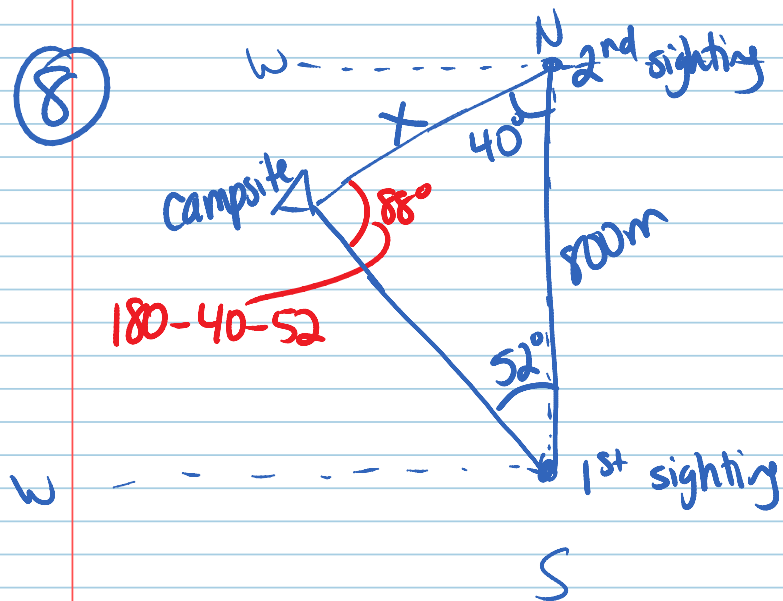 N
8
W
2nd sighting
x
40°
campsite
88°
800m
180-40-52
52°
W
1st sighting
S